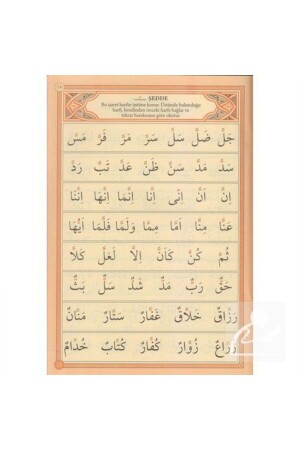 ŞEDDE
Bu işaret harfin üstüne konur. Üstünde bulunduğu
harfi, kendinden önceki harfe bağlar ve
tekrar harekesine göre okutur.
جَلَّ ضَلَّ سَلَّ سَرَّ مَرَّ فَرَّ مَسَّ
سَدَّ مَدَّ سَنَّ ظَنَّ عَدَّ تَبَّ رَدَّ
اِنَّ اَنَّ اِنّٖى اَنَّا اِنَّمَا اِنَّهَا اِنَّنَا
عَنَّا مِنَّا اَمَّا مِمَّا وَلَمَّا فَلَمَّا اَيُّهَا
ثُمَّ كُنَّ كَاَنَّ اِلَّا لَعَلَّ كَلَّا
حَقٌّ رَبٌّ مَدٌّ شَدٌّ سَلٌّ بَثٌّ
رَزَّاقٌ خَلَّاقٌ غَفَّارٌ سَتَّارٌ مَنَّانٌ
زُرَّاعٌ زُوَّارٌ كُفَّارٌ كُتَّابٌ خُدَّامٌ